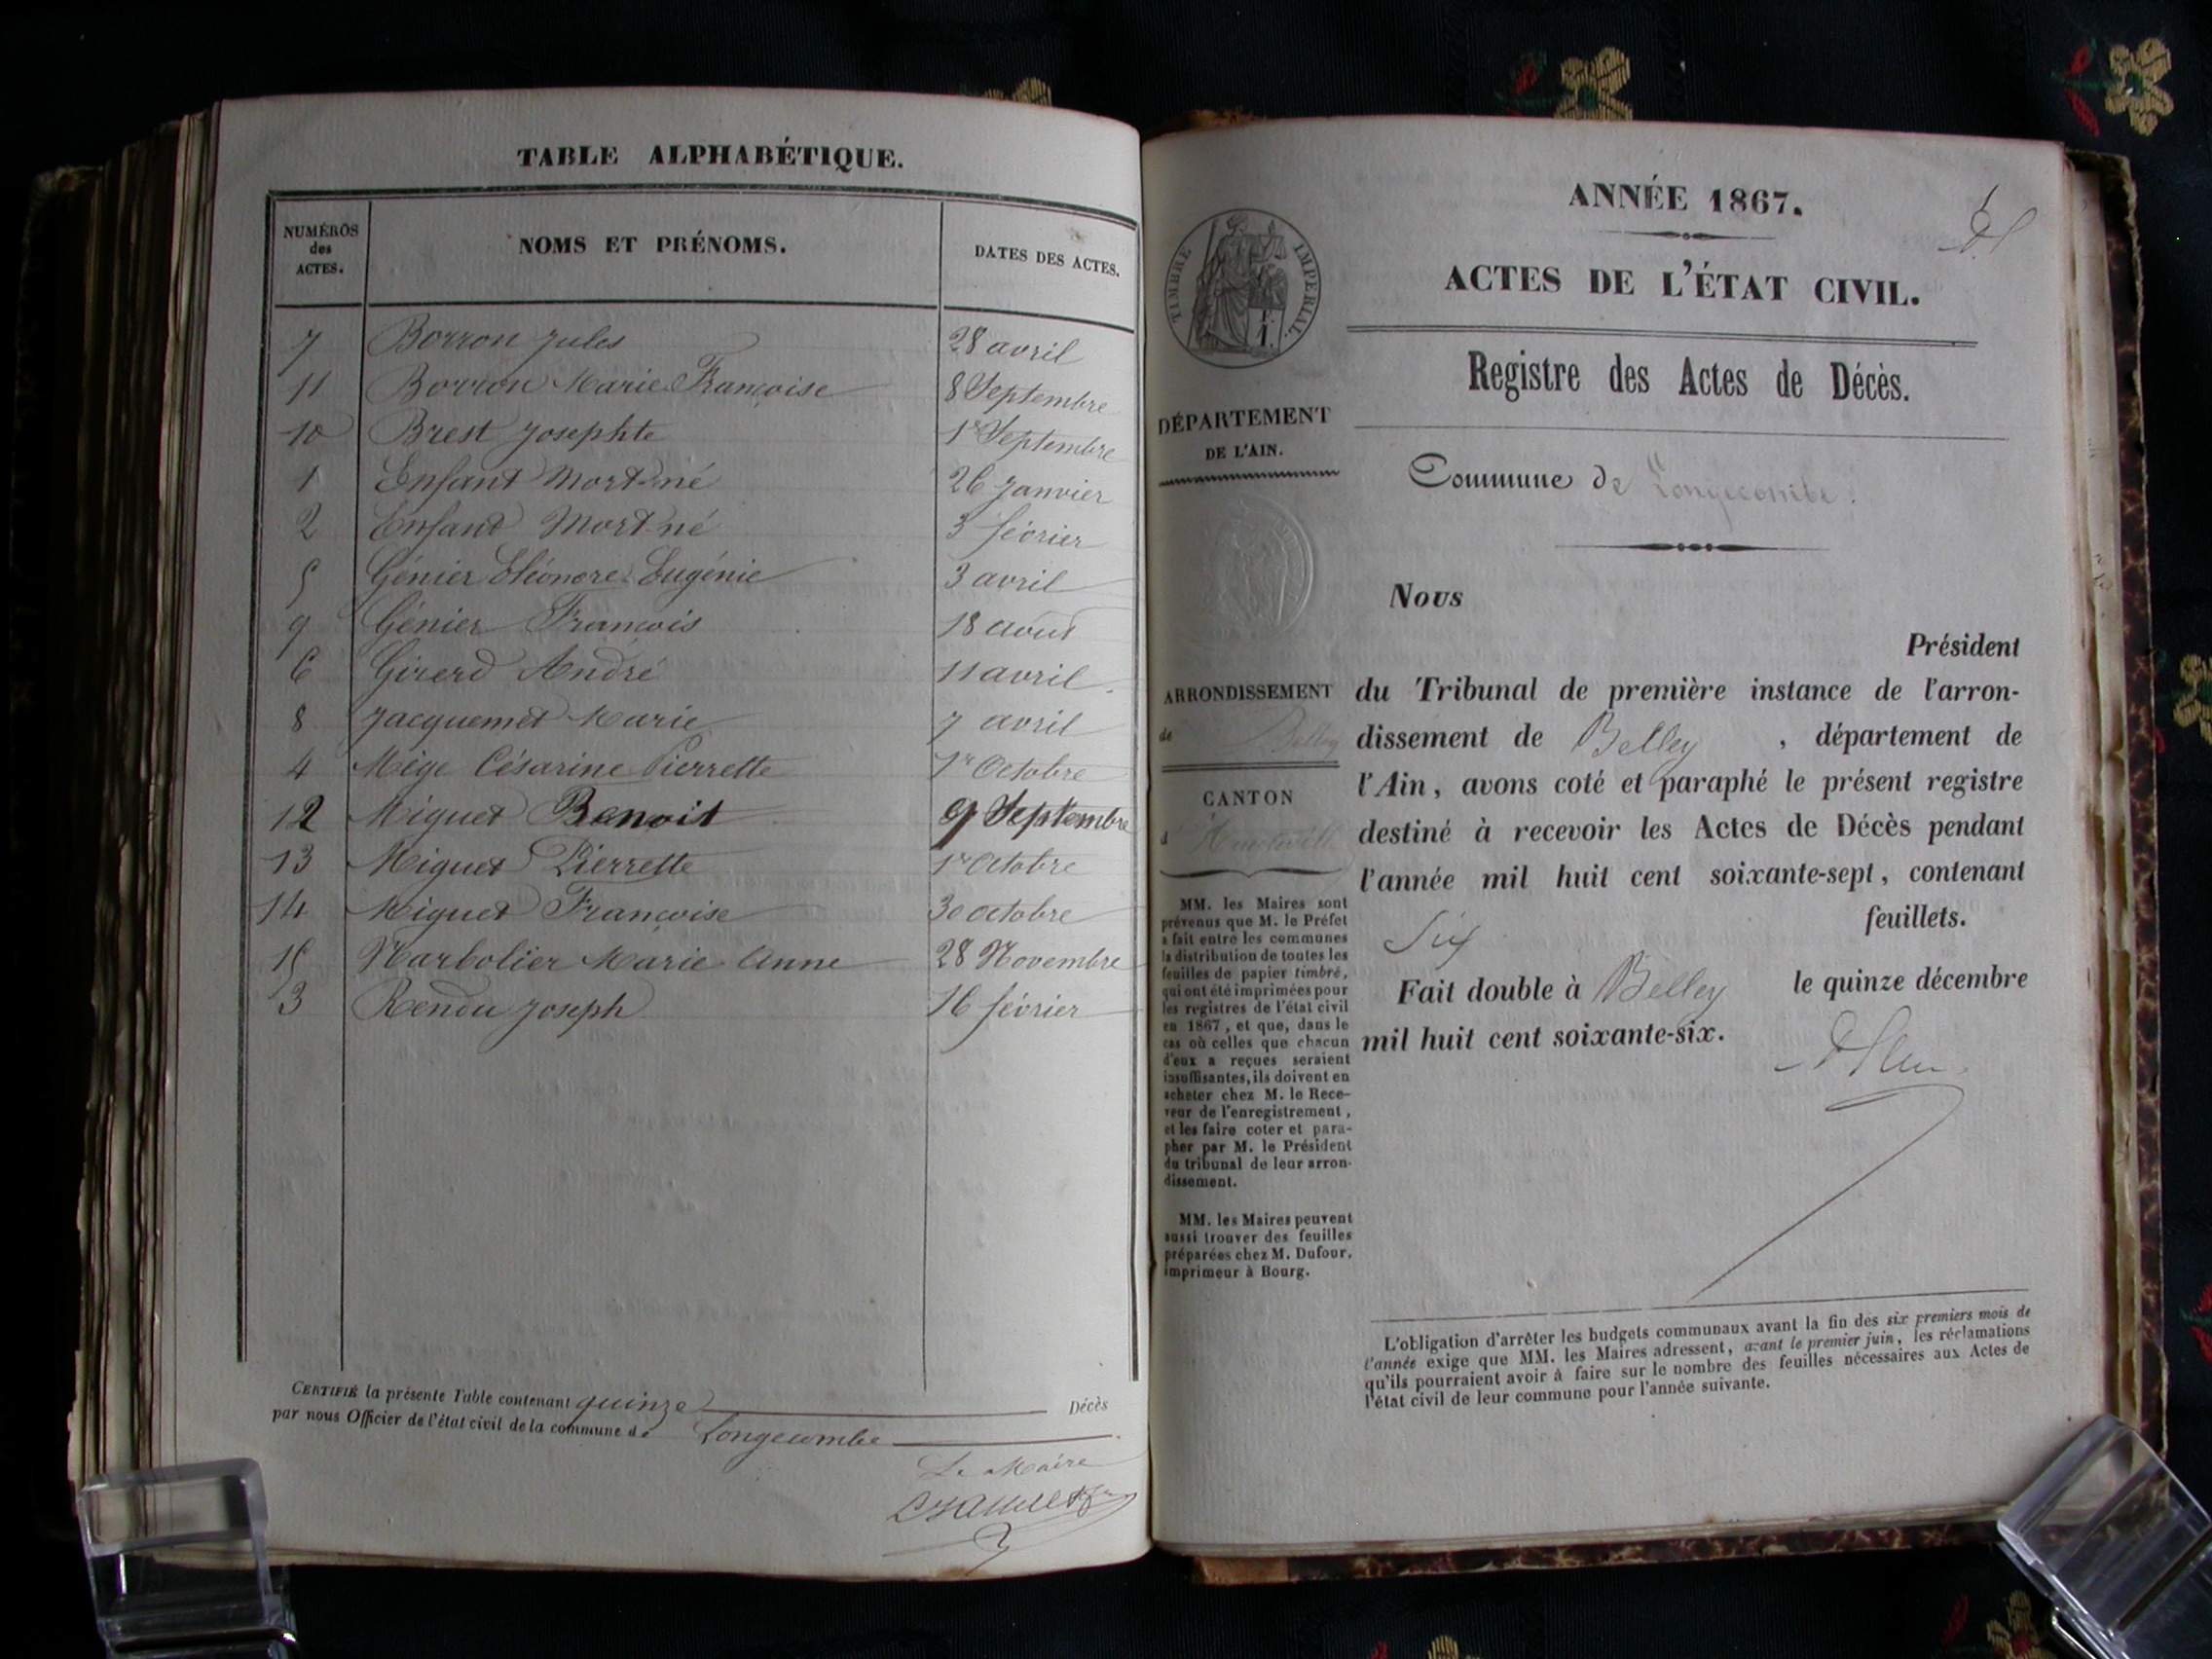 TABLE ALPHABÉTIQUE.
NUMÉROS des ACTES. NOMS ET PRÉNOMS. DATES DES ACTES.
7 Borron Jules 28 avril
11 Borron Marie Françoise 8 Septembre
10 Brest Josephte 1er Septembre
1 Enfant Mort-né 26 Janvier
2 Enfant Mort-né 3 février
5 Génier Eléonore Eugénie 3 avril
9 Génier François 18 aout
6 Girerd André 11 avril
8 Jacquemet Marie 7 avril
4 Mige Césarine Pierrette 1er Octobre
12 Miguet Benoit 9 Septembre
13 Miguet Pierrette 1er Octobre
14 Miguet Françoise 30 octobre
15 Narbolier Marie Anne 28 Novembre
3 Rendu Joseph 16 février
CERTIFIÉ la présente Table contenant quinze Décès
par nous Officier de l'état civil de la commune de Longecombe
Le Maire
ANNÉE 1867.
ACTES DE L'ÉTAT CIVIL.
TIMBRE IMPERIAL.
Registre des Actes de Décès.
DÉPARTEMENT
DE L'AIN.
Commune de Longecombe.
Nous
Président
ARRONDISSEMENT
de Belley
du Tribunal de première instance de l'arron-
dissement de Belley, département de
l'Ain, avons coté et paraphé le présent registre
destiné à recevoir les Actes de Décès pendant
l'année mil huit cent soixante-sept, contenant
Six feuillets.
Fait double à Belley le quinze décembre
mil huit cent soixante-six.
CANTON
d'
MM. les Maires sont
prévenus que M. le Préfet
a fait entre les communes
la distribution de toutes les
feuilles de papier timbré,
qui ont été imprimées pour
les registres de l'état civil
en 1867, et que, dans le
cas où celles que chacun
d'eux a reçues seraient
insuffisantes, ils doivent en
acheter chez M. le Rece-
veur de l'enregistrement,
et les faire coter et para-
pher par M. le Président
du tribunal de leur arron-
dissement.
MM. les Maires peuvent
aussi trouver des feuilles
préparées chez M. Dufour,
imprimeur à Bourg.
L'obligation d'arrêter les budgets communaux avant la fin des six premiers mois de
l'année exige que MM. les Maires adressent, avant le premier juin, les réclamations
qu'ils pourraient avoir à faire sur le nombre des feuilles nécessaires aux Actes de
l'état civil de leur commune pour l'année suivante.